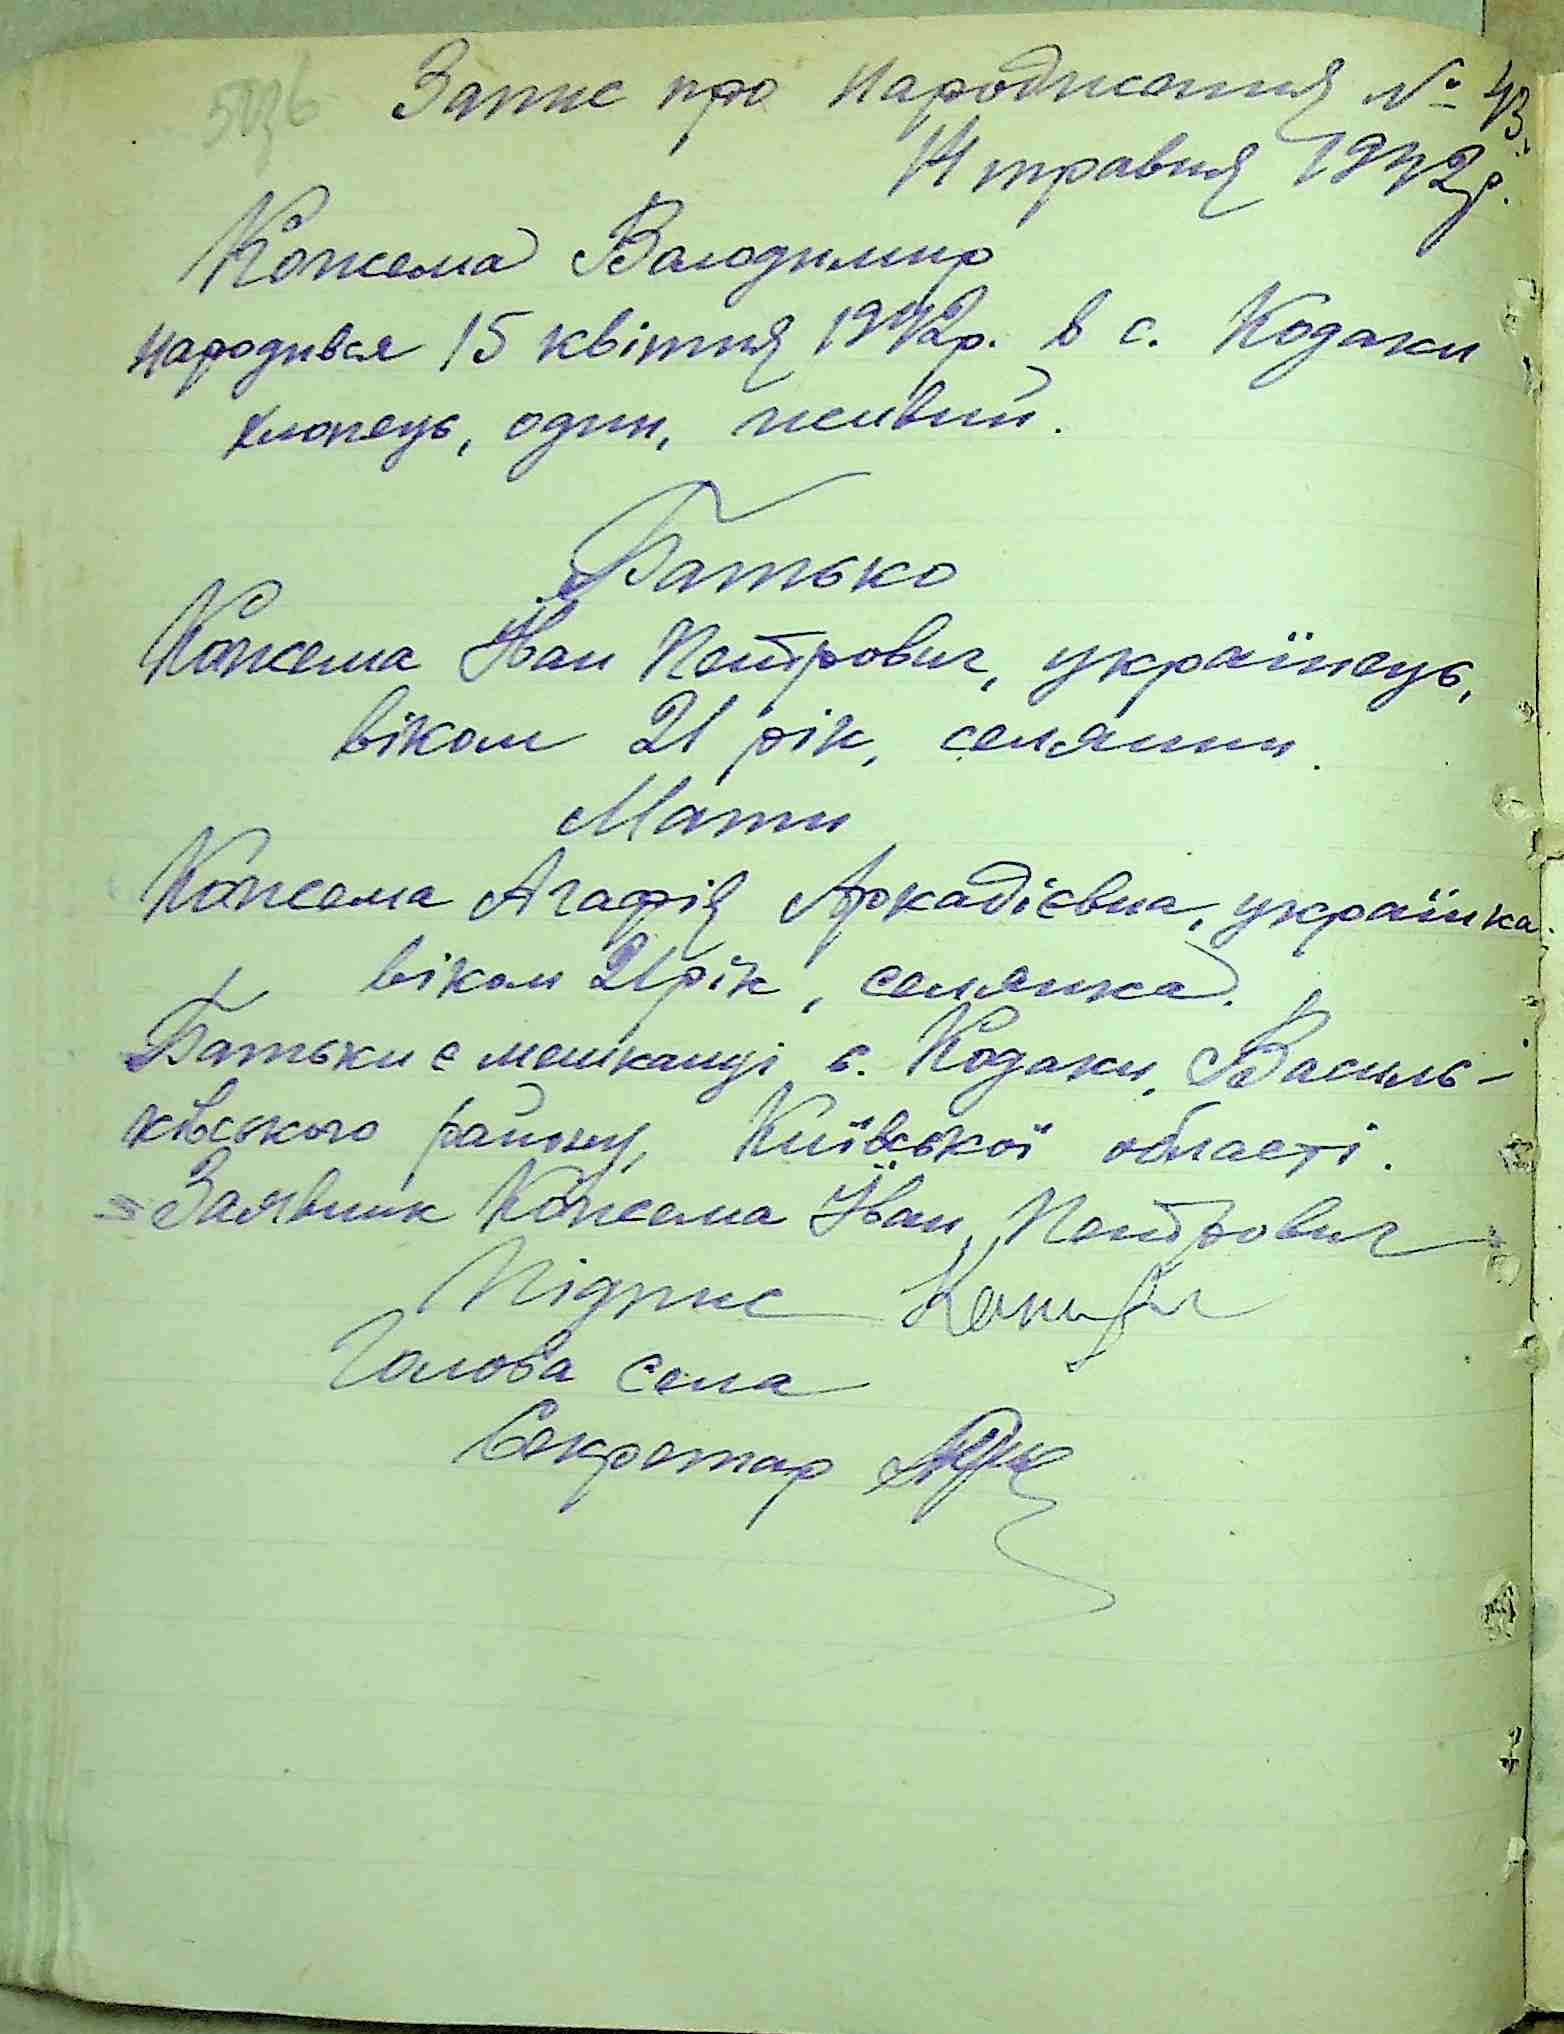 Запис про народження № 43.
14 травня 1942 р.
Кожема Володимир
народився 15 квітня 1942 р. в с. Кодаки
хлопець, один, живий.
Батько
Кожема Іван Петрович, українець,
віком 21 рік, селянин.
Мати
Кожема Агафія Аркадієвна, українка.
віком 21 рік, селянка.
Батьки є мешканці с. Кодаки, Василь-
ківського району, Київської області.
Заявник Кожема Іван Петрович
Підпис
Голова села
Секретар